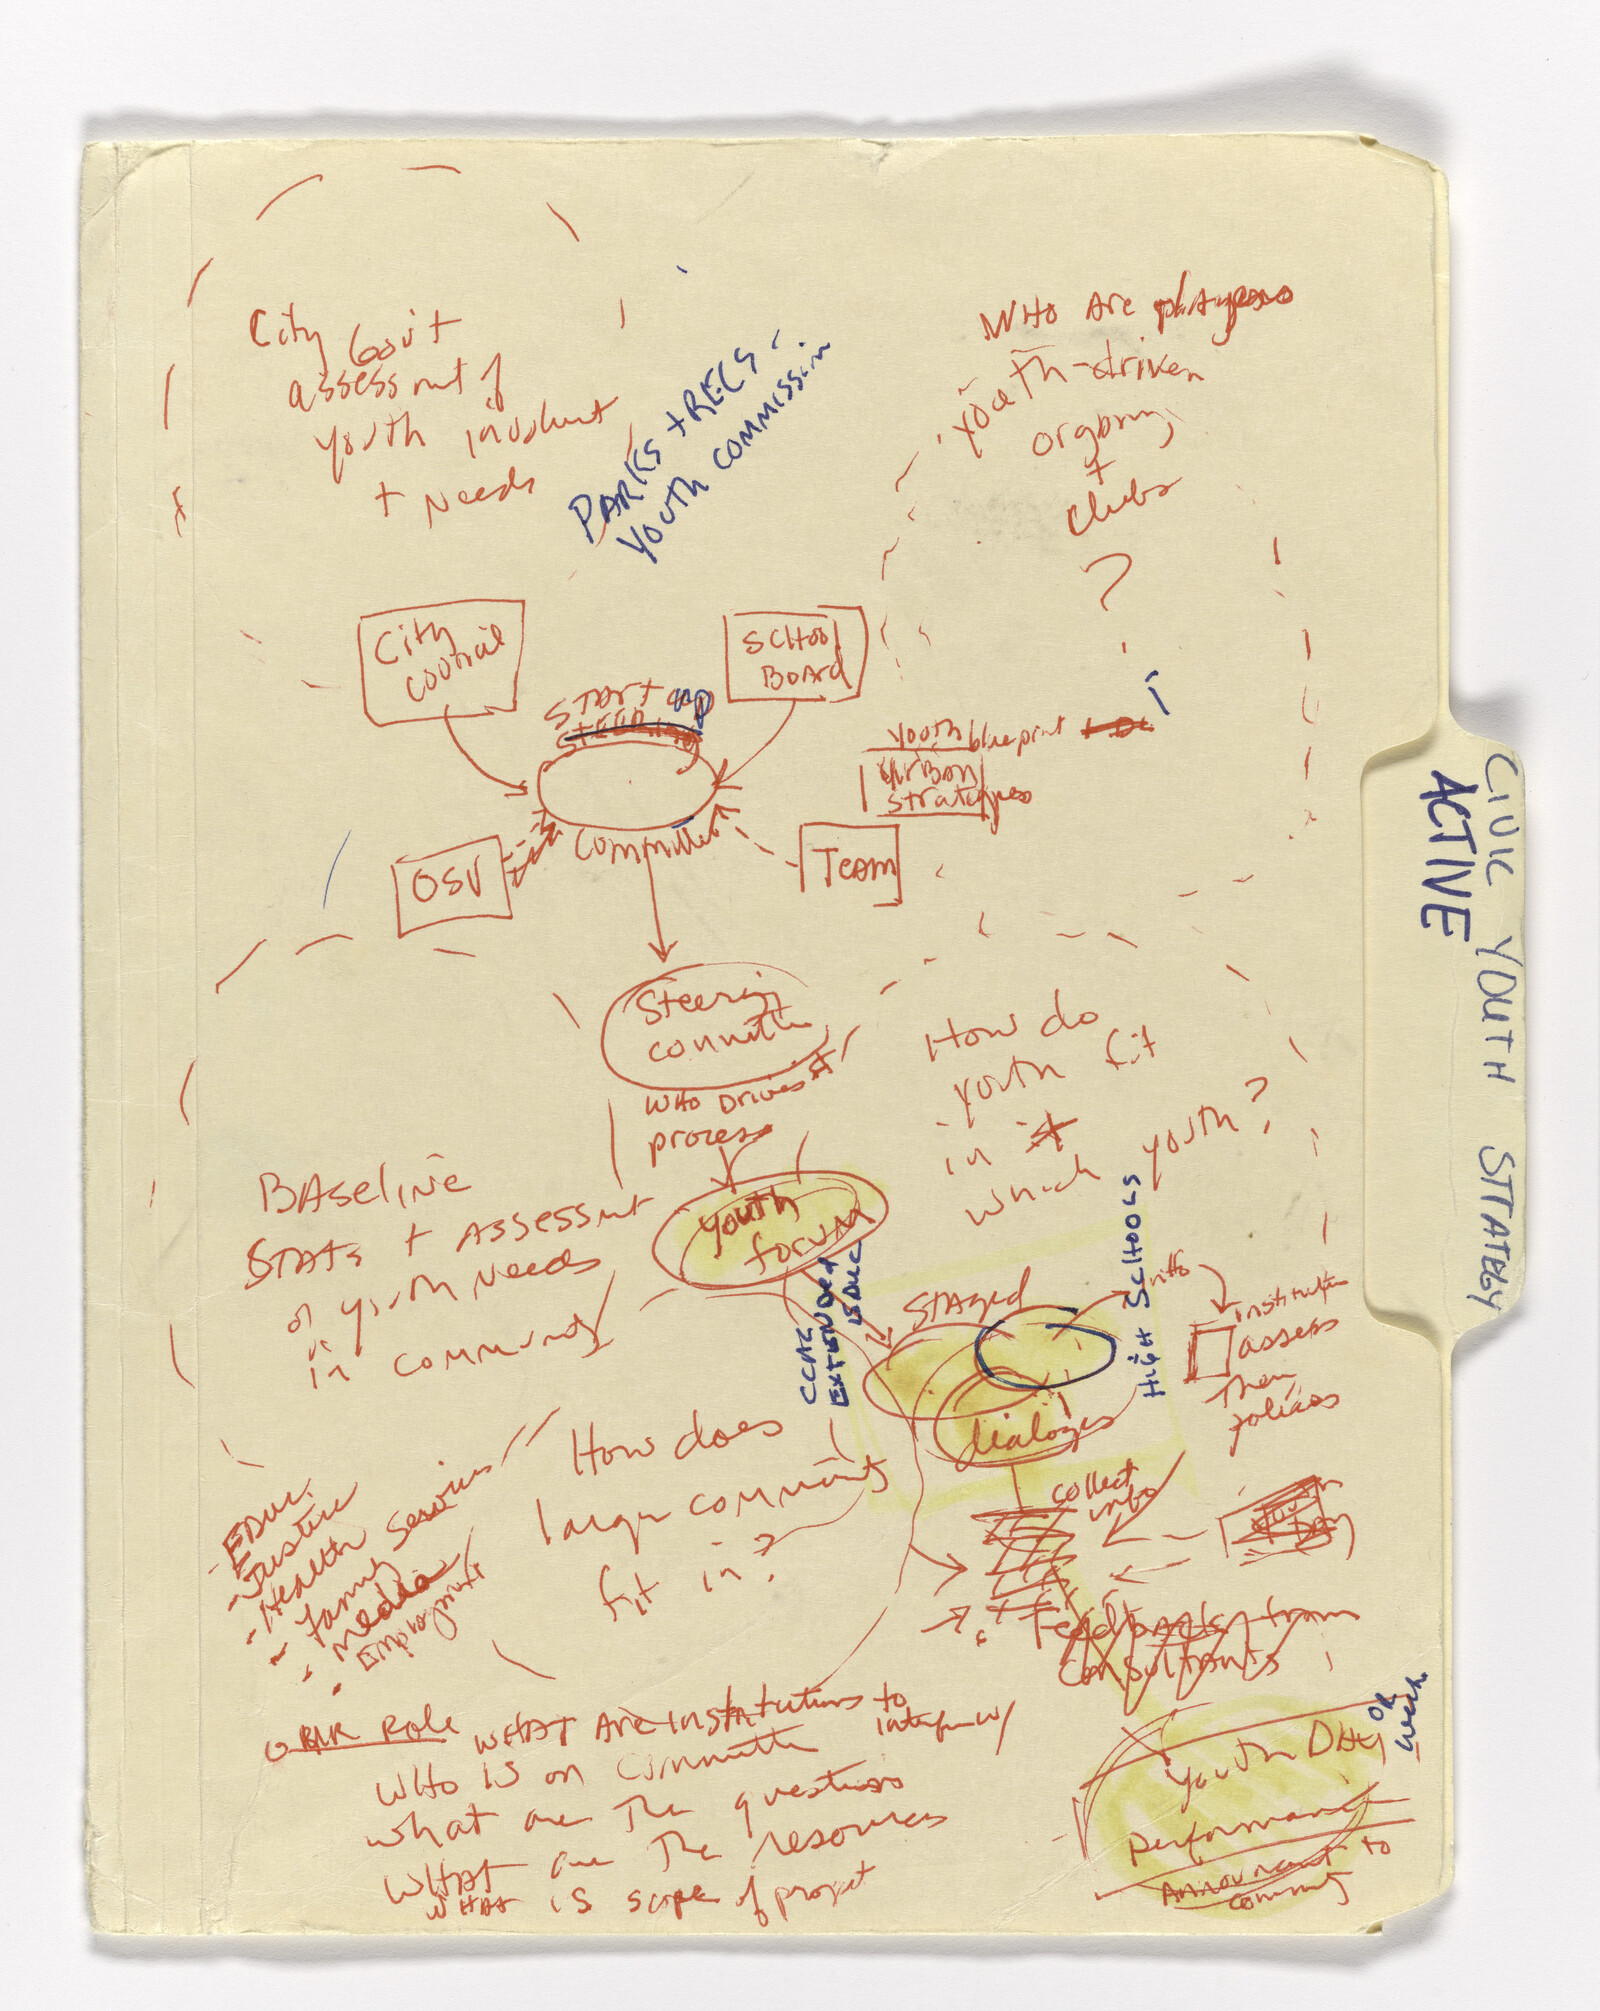 City Gov't
assessmt of
youth involvmt
+ Needs
PARKS + RECS
YOUTH COMMISSION
WHO Are players
youth-driven
organizing
+
clubs
?
City
council
SCHOOL
BOARD
START UP
STEERING
Committee
youth blueprint
urban
strategies
OSV
Team
Steering
committee
WHO Drives
process
How do
youth fit
in
which youth?
BASeliNe
STATS + ASSESSmt
of youth Needs
in community
Youth
forum
CCAC
EXTENDED
HIGH SCHOOLS
STAGED
dialogs
info
institution
assess
Their
policies
How does
larger community
fit in?
collect
info
- EDUC.
- Justice
- Health Services
- Family
- Media
- Employmt
Youth
Day
Feedback from
Consultants
OUR Role
WHAT Are institutions to
interface w/
WHO is on committee
what are The questions
WHAT are The resources
WHAT is scope of project
Youth DAY
OR
week
performance
Announcmt to
community
CIVIC YOUTH STRATEGY
ACTIVE